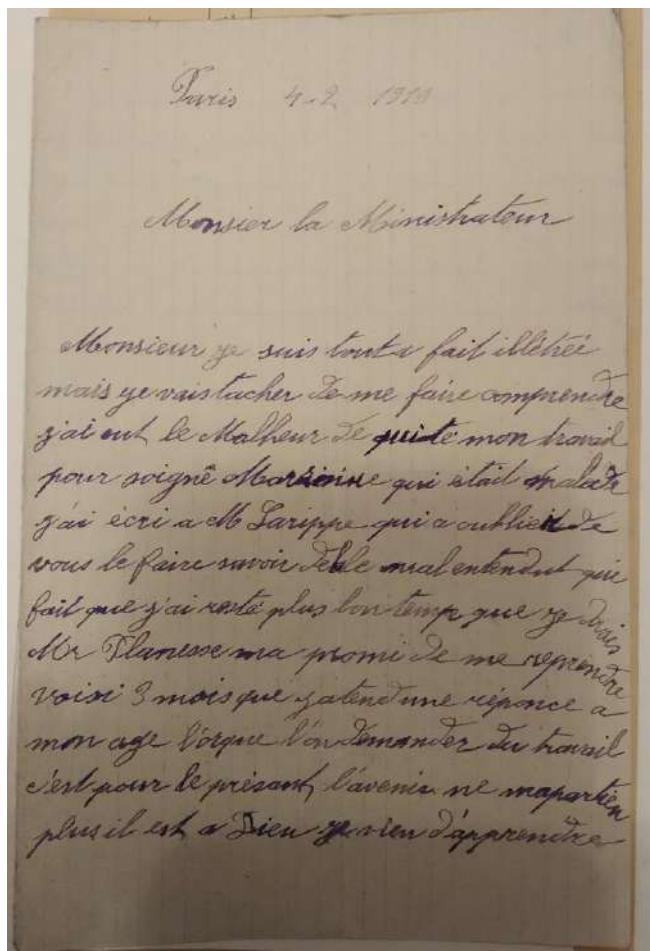 Paris 4-2 1910
Monsier la Ministrateur
Monsieur je suis tout a fait illétréé
mais je vais tacher de me faire comprendre
j'ai eut le Malheur de quité mon travail
pour soigné qui était malade
j'ai écri a Mr Larippe qui a oublieit de
vous le faire savoir de le mal entendut qui
fait que j'ai resté plus l'on temp que je
Mr Planesse ma promi de me reprendre
voisi 3 mois que j'atend une réponce a
mon age l'orque l'on demander du travail
c'est pour le présant, l'avenir ne mapartien
plus il est a Dieu je vien d'apprendre